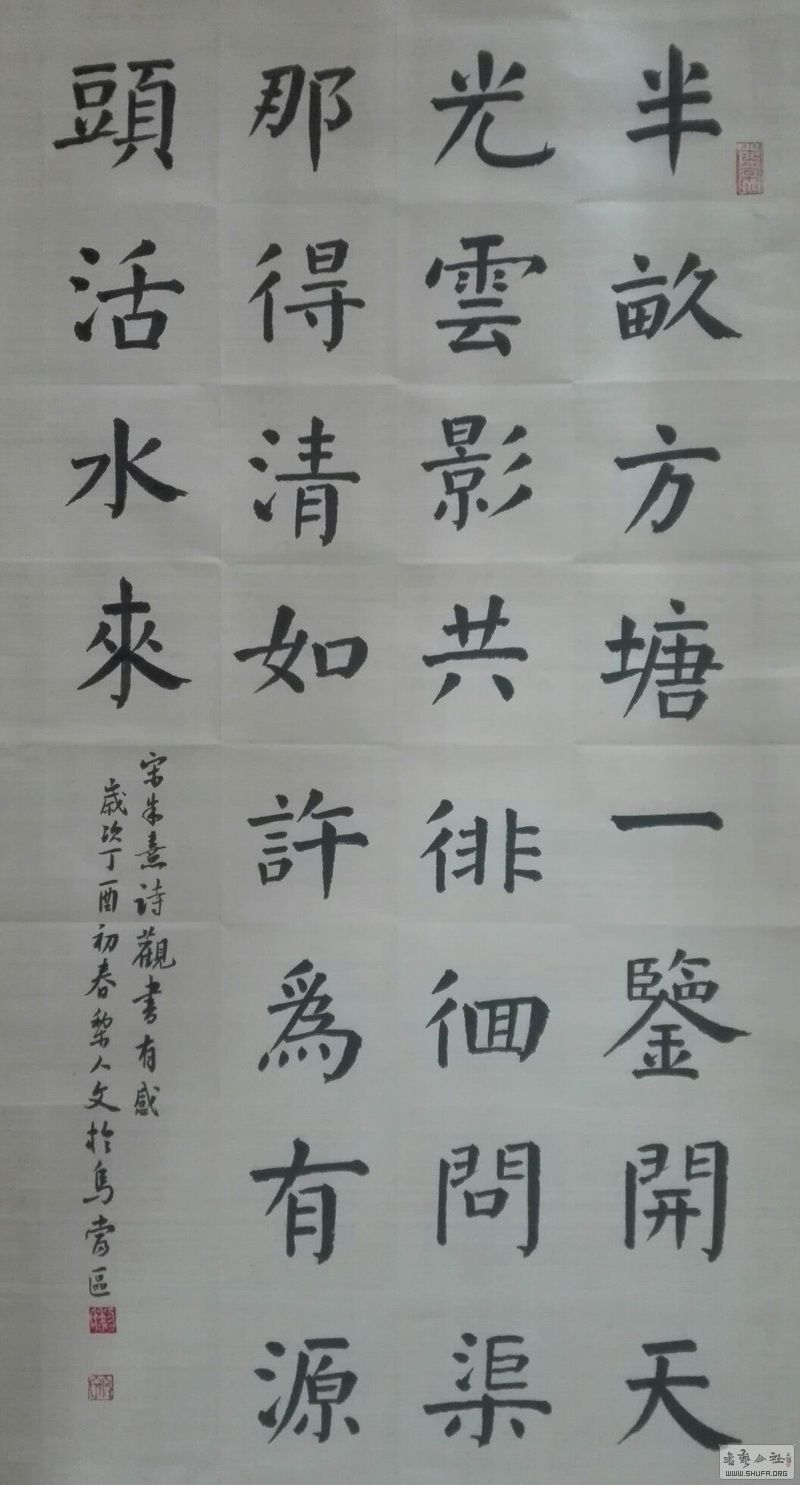 半畝方塘一鑒開天
光雲影共徘徊問渠
那得清如許為有源
頭活水來
宋朱熹詩觀書有感
歲次丁酉初春黎人文於烏當區
WWW.SHUFA.ORG